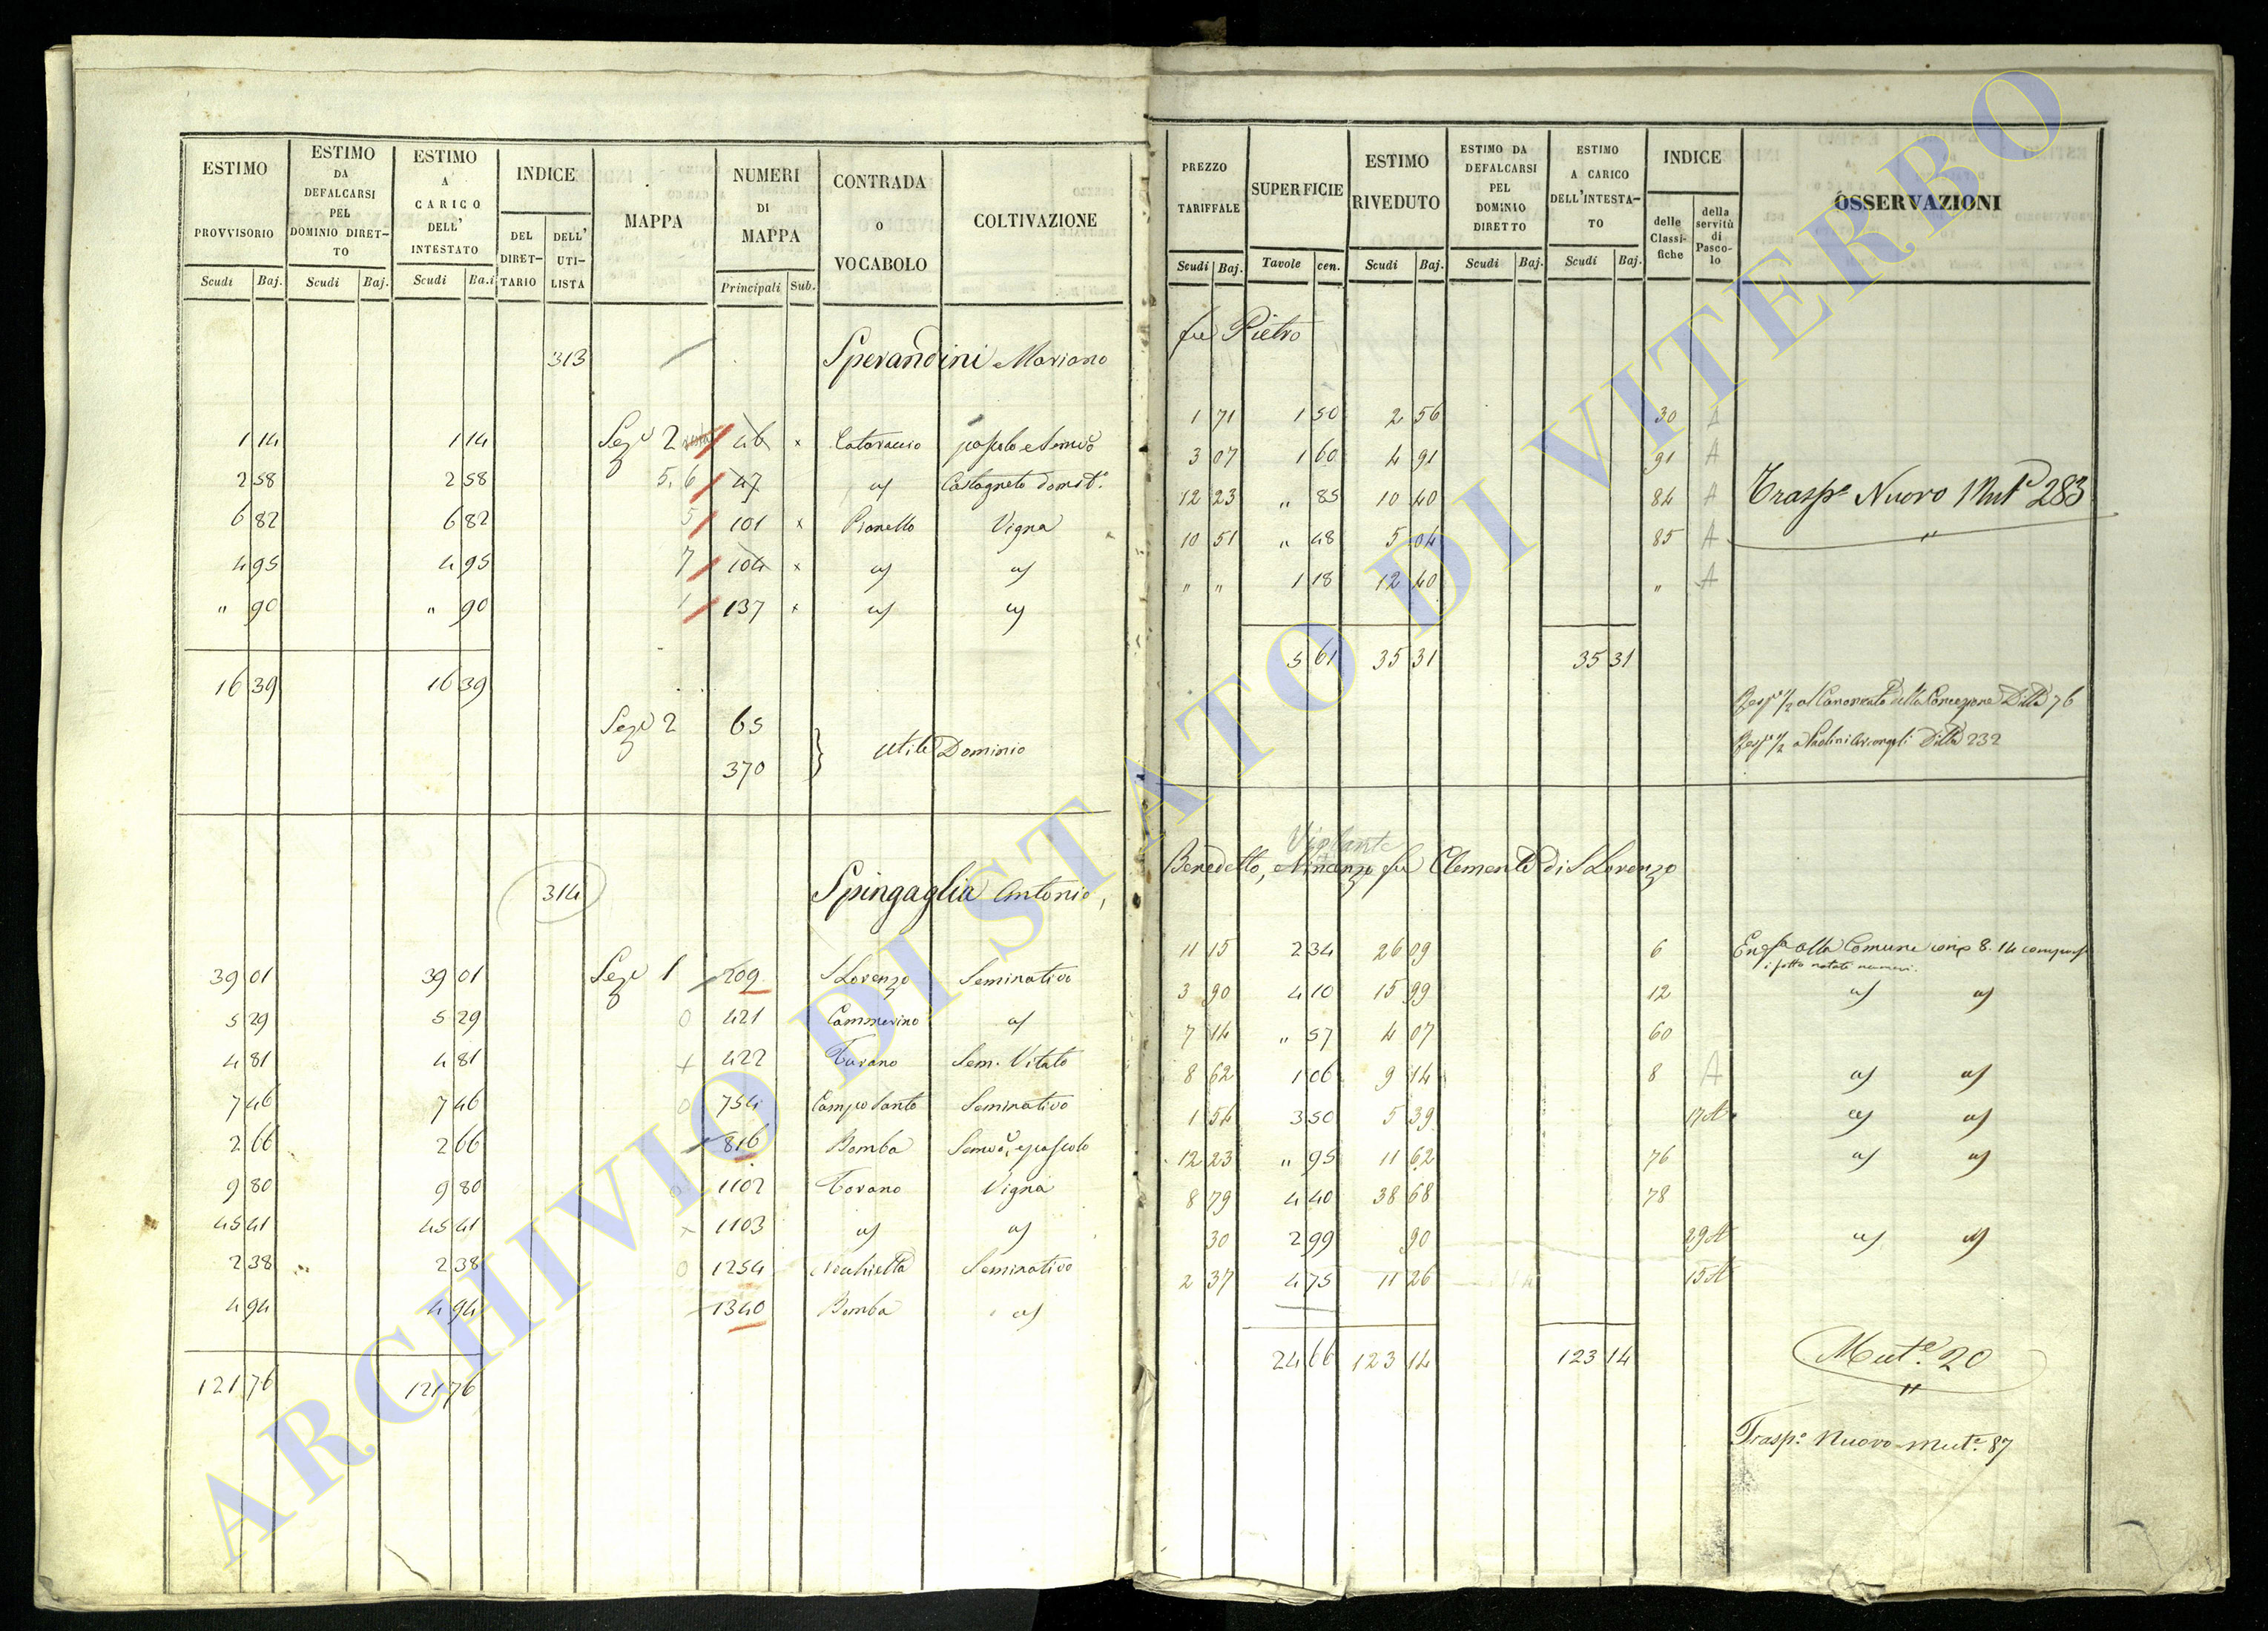 ESTIMO PROVVISORIO Scudi Baj.
ESTIMO DA DEFALCARSI PEL DOMINIO DIRET-TO Scudi Baj.
ESTIMO A CARICO DELL' INTESTATO Scudi Ba.i
INDICE DEL DIRET-TARIO DELL' UTI-LISTA
MAPPA
NUMERI DI MAPPA Principali Sub.
CONTRADA o VOCABOLO
COLTIVAZIONE
313 Sperandini Mariano
1 14 1 14 Sez.e 2 46 x pascolo e Semvo
2 58 2 58 5.6 47 " Castagneto Domit.
6 82 6 82 5 101 x Pianello Vigna
4 95 4 95 7 104 x " "
" 90 " 90 1 137 x " "
16 39 16 39
Sez.e 2 65
370 } Utile Dominio
314 Spingaglia Antonio,
39 01 39 01 Sez.e 1 209 S Lorenzo Seminativo
5 29 5 29 0 421 Cammerino "
4 81 4 81 + 422 Turano Sem. Vitato
7 46 7 46 0 754 Campo Santo Seminativo
2 66 2 66 816 Bomba Semvo, e pascolo
9 80 9 80 0 1102 Torano Vigna
45 41 45 41 x 1103 " "
2 38 2 38 0 1254 Seminativo
4 94 4 94 1340 Bomba "
121 76 121 76
PREZZO TARIFFALE Scudi Baj.
SUPERFICIE Tavole cen.
ESTIMO RIVEDUTO Scudi Baj.
ESTIMO DA DEFALCARSI PEL DOMINIO DIRETTO Scudi Baj.
ESTIMO A CARICO DELL'INTESTA-TO Scudi Baj.
INDICE delle Classi-fiche della servitù di Pasco-lo
OSSERVAZIONI
fu Pietro
1 71 1 50 2 56 30 A
3 07 1 60 4 91 91 A
12 23 " 85 10 40 84 A Trasp.e Nuovo Mut.e 283
10 51 " 48 5 04 85 A
" " 1 18 12 40 " A
5 61 35 31 35 31
1/2 al Canonicato della Concezione Ditta 76
1/2 a Ditta 232
Vigilante
Benedetto, Vincenzo fu Clemente di S Lorenzo
11 15 2 34 26 09 6 Enf.a alla Comune 8. 14
i sotto notati numeri.
3 90 4 10 15 99 12 " "
7 14 " 57 4 07 60
8 62 1 06 9 14 8 A " "
1 54 3 50 5 39 17 A " "
12 23 " 95 11 62 76 " "
8 79 4 40 38 68 78
30 2 99 90 29 A " "
2 37 4 75 11 26 15 A
24 66 123 14 123 14 Mut.e 20
Trasp.e Nuovo Mut.e 87
ARCHIVIO DI STATO DI VITERBO